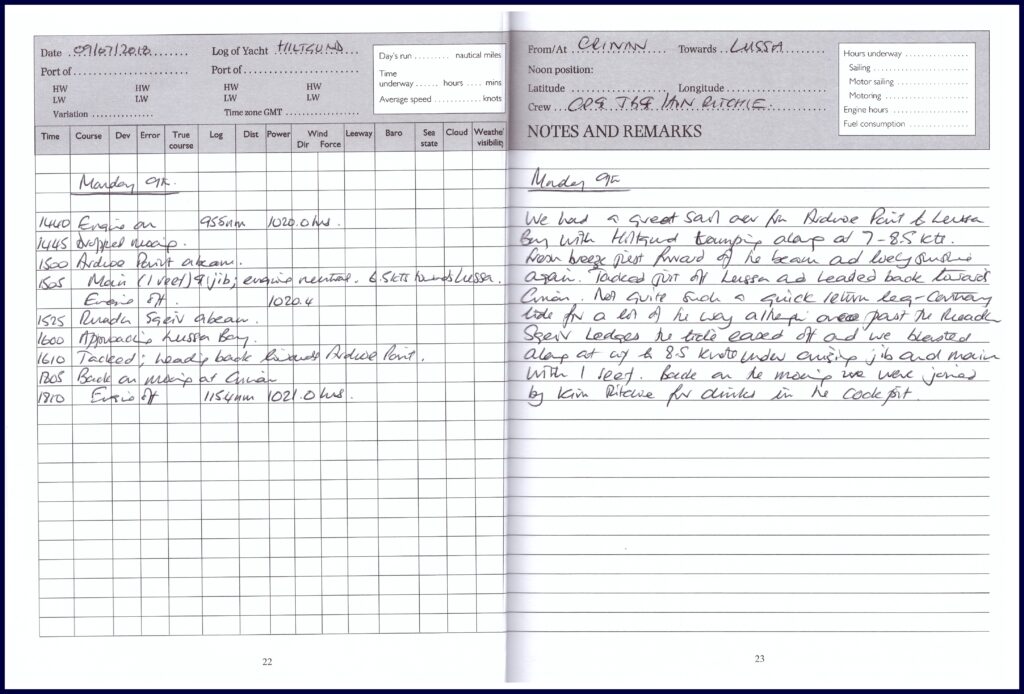 Date 09/07/2018 Log of Yacht HILTGUND
Port of Port of
HW HW HW HW
LW LW LW LW
Variation Time zone GMT
Day's run nautical miles
Time
underway hours mins
Average speed knots
Time Course Dev Error True course Log Dist Power Wind Dir Force Leeway Baro Sea state Cloud Weather visibility
Monday 9th.
1440 Engine on 955nm 1020.0 hrs.
1445 Dropped mooring.
1500 Ardnoe Point abeam.
1505 Main (1 reef) & jib; engine neutral. 6.5kts towards Lussa.
Engine off. 1020.4
1525 Ruadh Sgeir abeam.
1600 Approaching Lussa Bay.
1610 Tacked; heading back towards Ardnoe Point.
1805 Back on mooring at Crinan
1810 Engine off 1154nm 1021.0 hrs.
22
From/At CRINAN Towards LUSSA
Noon position:
Latitude Longitude
Crew IAIN RITCHIE
Hours underway
Sailing
Motor sailing
Motoring
Engine hours
Fuel consumption
NOTES AND REMARKS
Monday 9th
We had a great sail over from Ardnoe Point to Lussa
Bay with Hiltgund romping along at 7-8.5 kts.
fresh breeze just forward of the beam and lovely sunshine
again. Tacked just off Lussa and headed back towards
Crinan. Not quite such a quick return leg - contrary
tide for a lot of the way although once past the Ruadh
Sgeir Ledges the tide eased off and we blasted
along at up to 8.5 knots under jib and main
with 1 reef. Back on the mooring we were joined
by Ritchie for drinks in the cockpit.
23